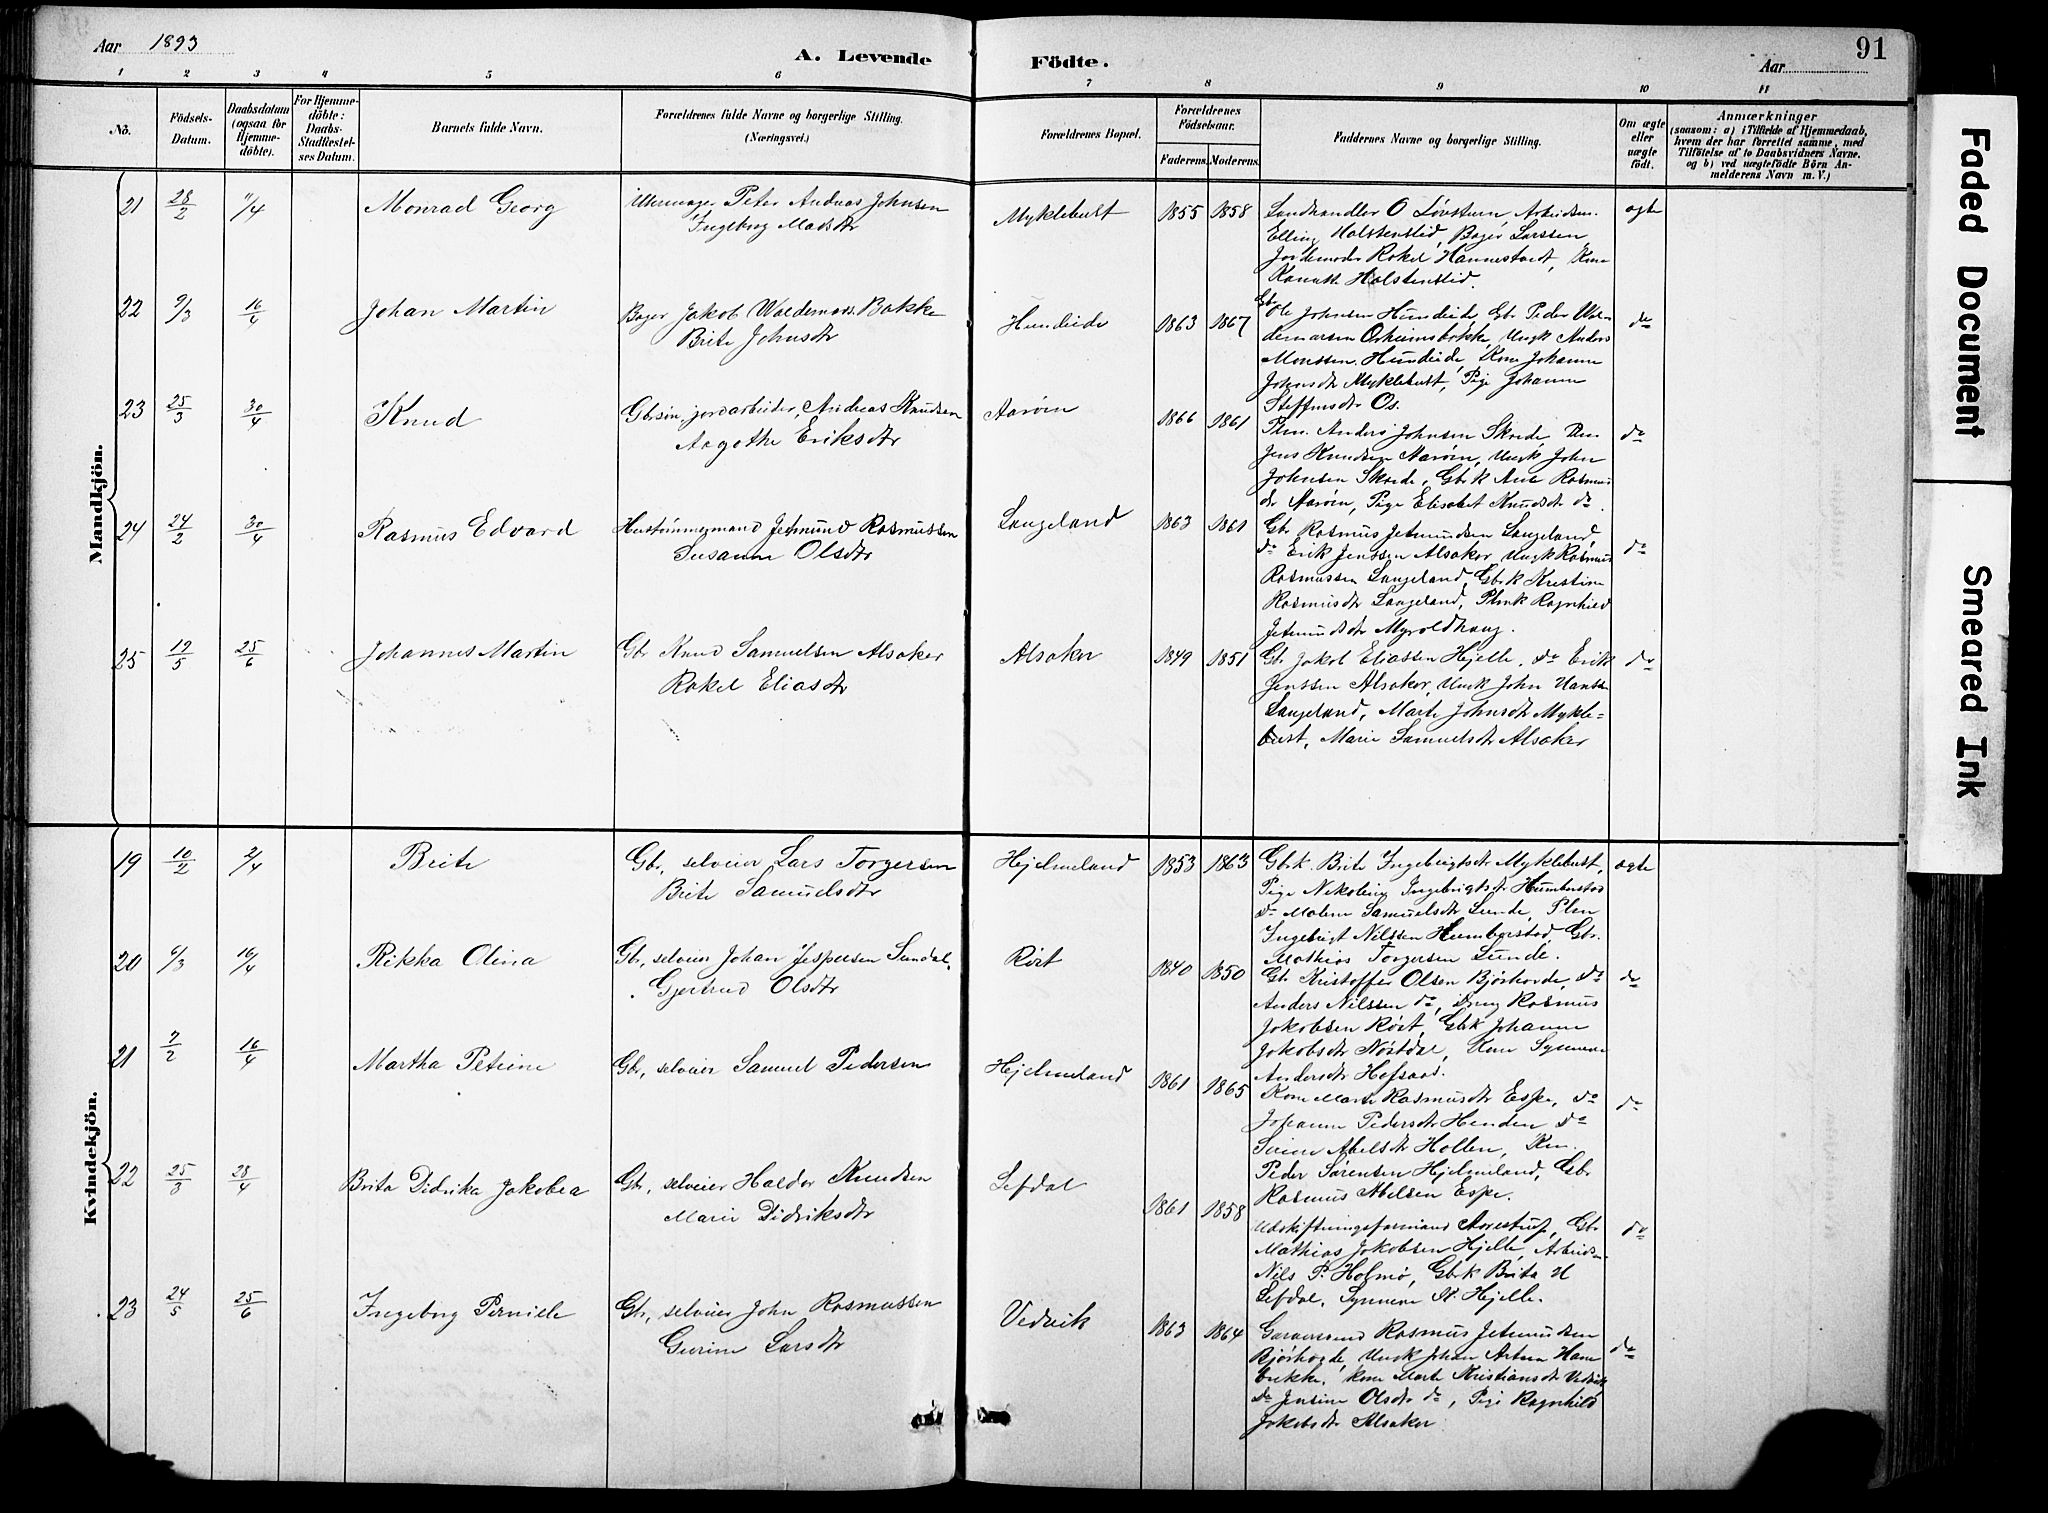 Aar 1893
A. Levende Födte.
Aar
91
1 2 3 4 5 6 7 8 9 10 11
No.
Födsels-Datum.
Daabsdatum (ogsaa for Hjemme-döbte).
For Hjemme-döbte: Daabs-Stadfæstel-ses Datum.
Barnets fulde Navn.
Forældrenes fulde Navne og borgerlige Stilling. (Næringsvei.)
Forældrenes Bopæl.
Forældrenes Födselsaar.
Faderens. Moderens.
Faddernes Navne og borgerlige Stilling.
Om ægte eller uægte födt.
Anmærkninger
(saasom: a) i Tilfælde af Hjemmedaab,
hvem der har forrettet samme, med
Tilföielse af to Daabsvidners Navne.
og b) ved uægtefödte Börn An-
melderens Navn m. V.)
Mandkjön.
21 28/2 11/4 Monrad Georg
Uhrmager Peter Andreas Johnsen
Ingeborg Madsdtr
Myklebust 1855 1858
Landhandler O Løvstuen, Arbeidsm.
Elling Holstenstid, Bager Larssen
Jordemoder Rakel Hannestvedt, Kone
Holstenstid.
ægte
22 9/3 16/4 Johan Martin
Bager Jakob Waldemars. Bakke
Brite Johnsdtr
Hundeide 1863 1867
Gbr Ole Johnsen Hundeide, Gbr Peder Wal-
demarsen Osheimsbakke, Ungk Anders
Monssen Hundeide, Kone Johanne
Johnsdtr Myklebust, Pige Johanne
Steffensdtr Os.
do
23 25/3 30/4 Knud
Gbrsøn, jordarbeider, Andreas Knudsen
Aagothe Eriksdtr
Aarøen 1866 1861
Plm. Anders Johnsen Skorde, Plm
Jens Knudsen Aarøen, Ungk John
Johnsen Skorde, Gbrk Ane Rasmus
dtr Aarøen, Pige Elisabet Knudsdtr do.
do
24 24/2 30/4 Rasmus Edvard
Hustømmermand Jetmund Rasmussen
Susanne Olsdtr
Langeland 1863 1861
Gbr Rasmus Jetmundsen Langeland,
do Erik Jenssen Alsaker, Ungk Rasmus
Rasmussen Langeland, Gbrk Kristine
Rasmusdtr Langeland, Plmk Ragnhild
Jetmundsdtr Myroldhaug.
do
25 19/5 25/6 Johannes Martin
Gbr Knud Samuelsen Alsaker
Rakel Eliasdtr
Alsaker 1849 1851
Gbr Jakob Eliassen Hjelle, do Erik
Jenssen Alsaker, Ungk John Hanssen
Langeland, Marte Johnsdtr Mykle-
bust, Marie Samuelsdtr Alsaker
do
Kvindekjön.
19 10/2 2/4 Brite
Gbr, selveier Lars Torgersen
Brite Samuelsdtr
Hjelmeland 1853 1863
Gbrk. Brite Ingebrigtsdtr Myklebust,
Pige Nikoline Ingebrigtsdtr Humberstad
do Malene Samuelsdtr Lunde, Plm
Ingebrigt Nilssen Humberstad, Gbr.
Mathias Torgersen Lunde.
ægte
20 6/3 16/4 Rikka Olina
Gbr, selveier Johan Jespersen Sundal.
Gjertrud Olsdtr
Røit 1840 1850
Gbr Kristoffer Olsen Bjørhovde, do
Anders Nilssen do, Rasmus
Jakobsen Røit, Gbrk Johanne
Jakobsdtr Nøstdal, Kone Synneve
Andersdtr Hofsaas.
do
21 7/2 16/4 Martha Petrine
Gbr, selveier Samuel Pedersen
Hjelmeland 1861 1865
Kone Marte Rasmusdtr Espe, do
Johanne Pedersdtr Henden do
Abelsdtr Hollen, Km.
Peder Sørensen Hjelmeland, Gbr
Rasmus Abelsen Espe.
do
22 25/3 28/4 Brita Didrika Jakobea
Gbr, selveier Haldor Knudsen
Marie Didriksdtr
Sefdal 1861 1858
Udskiftningsformand Aarestrup, Gbr
Mathias Jakobsen Hjelle, Arbeidsm.
Nils P. Holmø, Gbrk Brita H
Sefdal, Synneve Hjelle.
do
23 24/5 25/6 Ingeborg Pernille
Gbr, selveier John Rasmussen
Gurine Larsdtr
Vedvik 1863 1864
Garversvend Rasmus Jetmundsen
Bjørhovde, Ungk Johan Antun Ham
brekke, Kone Marte Kristiansdtr Vedvik
do Jensine Olsdtr do, Pige Ragnhild
Jakobsdtr Alsaker
do
Faded Document
Smeared Ink